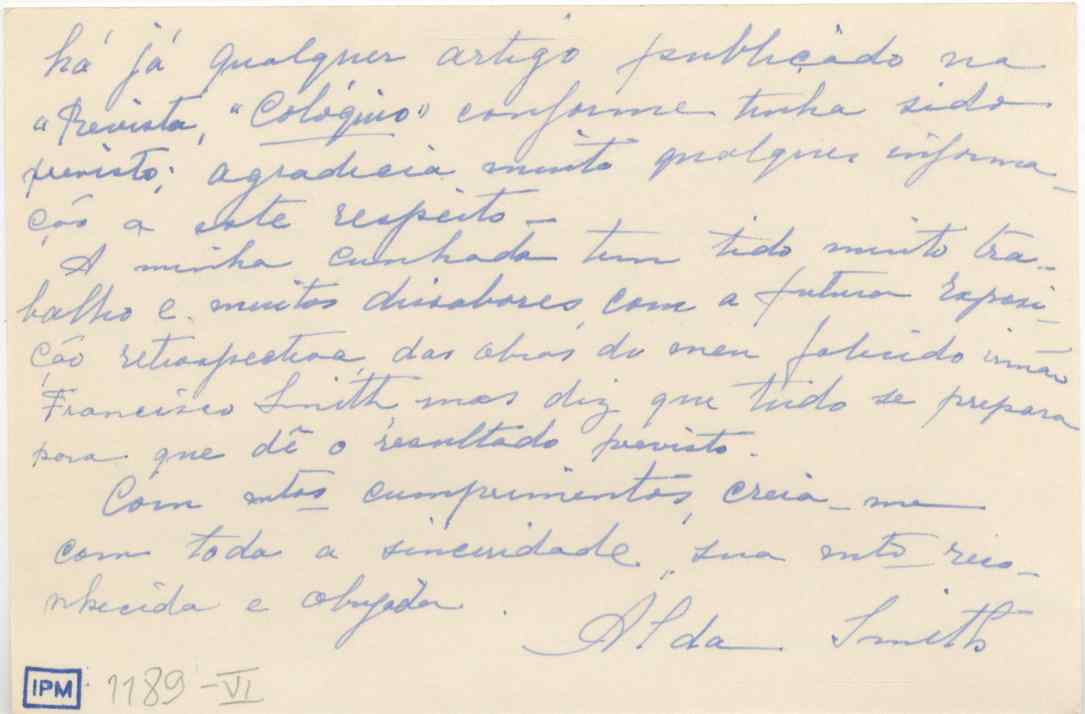 há já qualquer artigo publicado na
"Revista, "Colóquio" conforme tinha sido
previsto; agradecia muito qualquer informa-
ção a este respeito -
A minha cunhada tem tido muito tra-
balho e muitos dissabores, com a futura Exposi-
ção retrospectiva, das obras do meu falecido irmão
Francisco Smith, mas diz que tudo se prepara
para que dê o resultado previsto.
Com mtos cumprimentos, creia-me
com toda a sinceridade, sua mto reco-
nhecida e obrigada.
Alda Smith
IPM 1189-VI